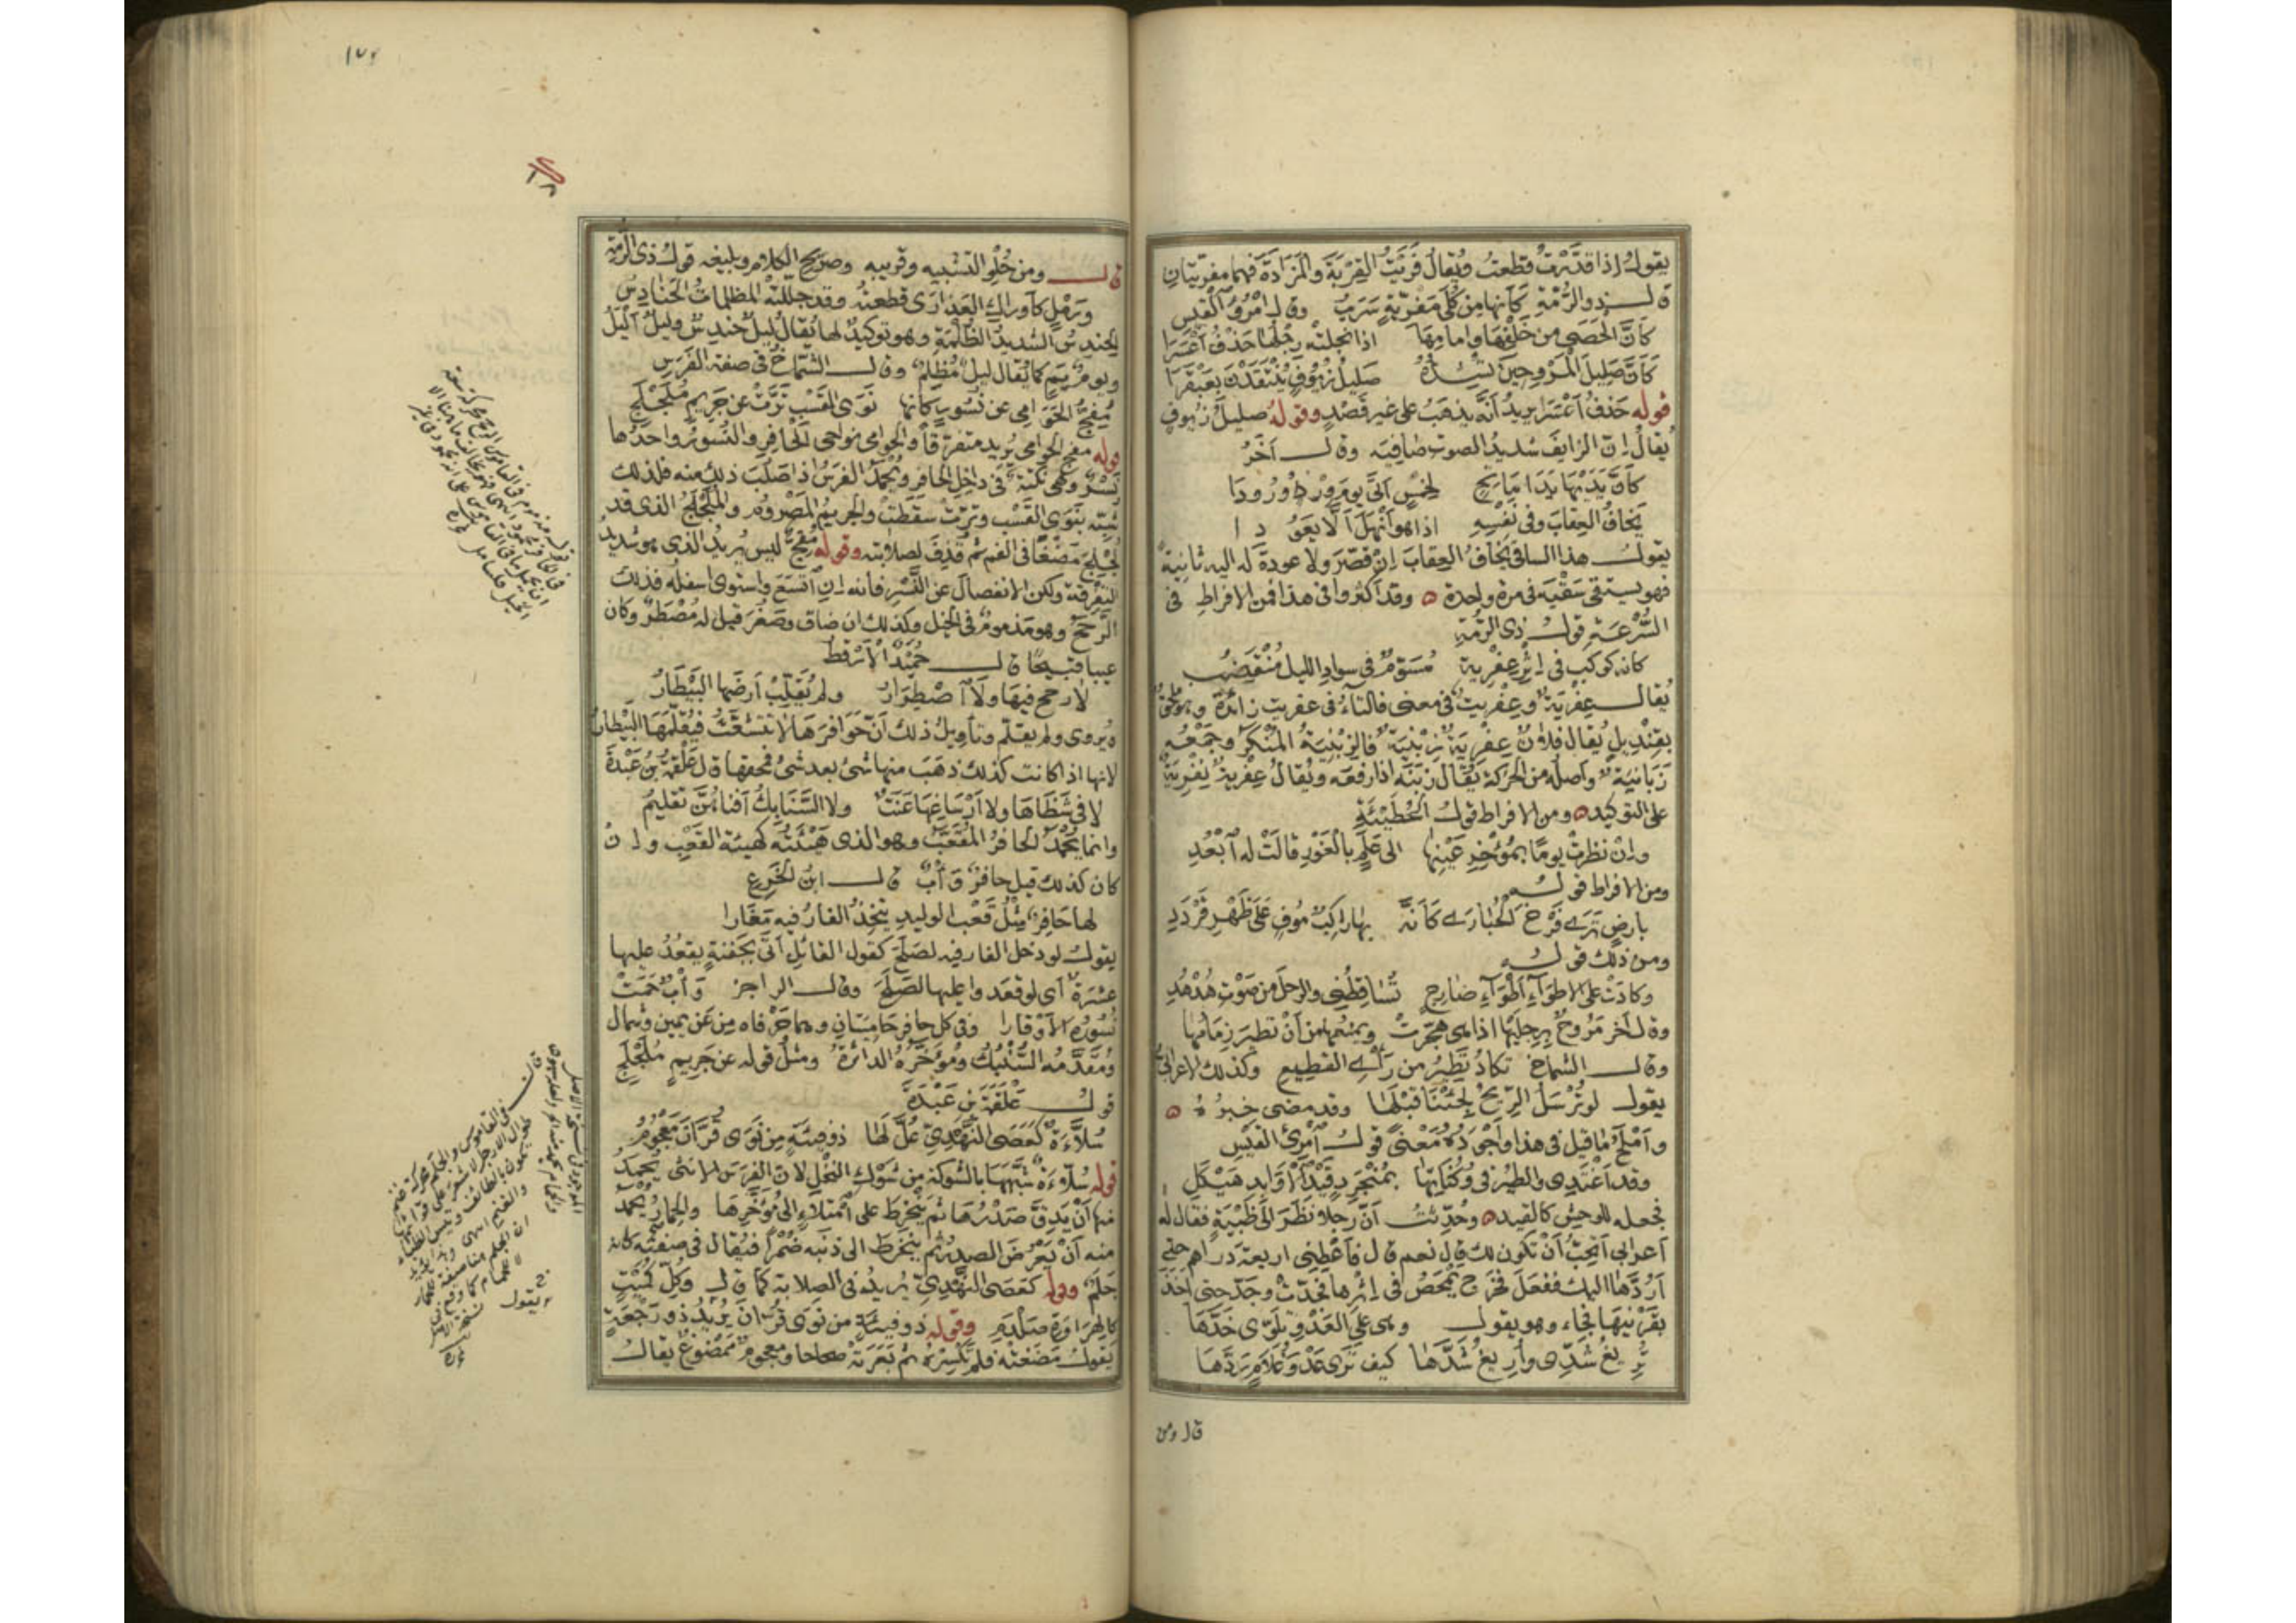 يقول إذا قدّرت قطعت ويقال فريت القربة والمزادة فهما مفريتان
قال ذو الرُّمّة كأنها من كُلى مفرية سرب وقال امرؤ القيس
كأنّ الحصى من خلفها وامامها اذا نجلته رجلها حذف أعسرا
كأنّ صليل المرو حين تشذه صليل زيوف ينتقدن بعبقرا
قوله حذف أعسرا يريد أنه يذهب على غير قصد وقوله صليل زيوف
يقال إنّ الزايف شديد الصوت صافيه وقال آخر
كأنّ يديها يدا ماتح لخمس أتى يوم ورد ورودا
يخاف العقاب وفى نفسه اذا هو أنهل ألّا يعودا
يقول هذا الساقى يخاف العقاب إن قصّر ولا عودة له اليه ثانية
فهو يستقى سقيه فى مرة واحدة وقد أكثروا فى هذا فمن الافراط فى
السُّرعة قول ذى الرمّة
كانه كوكب فى إثر عفرية مسوّم فى سواد الليل منقضب
يقال عفرية وعفريت فى معنى فالتاء فى عفريت زائدة وهو ملحق
بقنديل يقال فلان عفرية زبنية فالزبنية المنكر وجمعه
زبانية واصله من الحركة يقال زبنه اذا دفعه ويقال عفرية نفرية
على التوكيد ومن الافراط قول الحطيئة
وإن نظرت يوما بمؤخر عينها الى علم بالغور قالت له ابعد
ومن الافراط قوله
بارض ترى فرخ الحبارى كأنّه بها راكب موف على ظهر قردد
ومن ذلك قوله
وكادت على الاطواء أطواء ضارج تساقطنى والرحل من صوت هدهد
وقال آخر مروح برجليها اذا هى هجّرت ويمنعها من أن تطير زمامها
وقال الشماخ تكاد تطير من رأى القطيع وكذلك الاعرابى
يقول لو ترسل الريح لجئنا قبلها وقد مضى خبره
وأملح ما قيل فى هذا وأجوده معنى قول امرئ القيس
وقد أغتدى والطير فى وكناتها بمنجرد قيد الاوابد هيكل
فجعله للوحش كالقيد وحدّثت أنّ رجلا نظر الى ظبية فقال له
أعرابى أتحبّ أن تكون لك قال نعم قال فأعطنى اربعة دراهم حتى
أردّها اليك ففعل فخرج يمحص فى إثرها فجدّت وجدّ حتى أخذ
بقرنيها فجاء وهو يقول وهى على العدو تلوّى خدّها
تريغ شدّى وأريغ شدّها كيف ترى عدو غلام ردّها
قال ومن
قال ومن حلو التشبيه وقريبه وصريح الكلام وبليغه قول ذى الرمة
ورمل كأوراك العذارى قطعته وقد جللته المظلمات الحنادس
الحندس الشديد الظلمة وهو توكيد لها يقال ليل حندس وليل أليل
ويوم يم كما يقال ليل مظلم وقال الشماخ فى صفة الفرس
مفجّ الحوامى عن نسور كأنها نوى القسب ترّت عن جريم ملجلج
قوله مفج الحوامى يريد متفرقا والحوامى نواحى الحافر والنسور واحدها
نسر وهى نكتة فى داخل الحافر ويحمد الفرس اذا صلب ذلك منه فلذلك
شبّه بنوى القسب وترّت سقطت والجريم المصروم والملجلج الذى قد
لجلج مضغا فى الفم ثم قذف لصلابته وقوله مفج ليس يريد الذى هو شديد
التفرقة ولكن الانفصال عن النسر فانه إن اتسع واستوى اسفله فذلك
الرّحح وهو مذموم فى الخيل وكذلك ان ضاق وصغر قيل له مصطرّ وكان
عيبا قبيحا قال حميد الأرقط
لا رحح فيها ولا اصطرار ولم يقلّب أرضها البيطار
ويروى ولم يقلّم وتأويل ذلك أنّ حوافرها لا تتشعّث فيقلّمها البيطار
لانها اذا كانت كذلك ذهب منها شئ بعد شئ فمحقها قال علقمة بن عبدة
لا فى شظاها ولا أرساغها عنت ولا السنابك أفناهنّ تقليم
وانما يحمد الحافر المقعّب وهو الذى هيئته كهيئة القعب وإن
كان كذلك قيل حافر وأب قال ابن الخرع
لها حافر مثل قعب الوليد يتّخذ الفار فيه مغارا
يقول لو دخل الفار فيه لصلح كقول القائل أتى بجفنة يقعد عليها
عشرة أى لو قعدوا عليها لصلح وقال الراجز وأب حمت
نسوره الأوقارا وفى كل حافر حاميتان وهما حرفاه من عن يمين وشمال
ومقدّمه السنبك ومؤخّره الدائرة ومثل قوله عن جريم ملجلج
قول علقمة بن عبدة
سلّاءة كعصى النهدىّ غلّ لها ذو فيئة من نوى قرّان معجوم
قوله سلّاءة شبّهها بالشوكة من شوك النخل لان الفرس الانثى يحمد
منها أن يدقّ صدرها ثم ينخرط على امتلاء الى مؤخّرها والحمار يحمد
منه أن يعرض الصدر ثم ينخرط الى ذنبه ضمرا فيقال فى صفته كانه
جلم وقوله كعصى النهدىّ يريد فى الصلابة كما قال وكلّ كميت
كالهراوة صلدم وقوله ذو فيئة من نوى قرّان يريد ذو رجعة
يقول مضغته فلم تكسره ثم بعرته صحاحا ومعجوم ممضوغ يقال